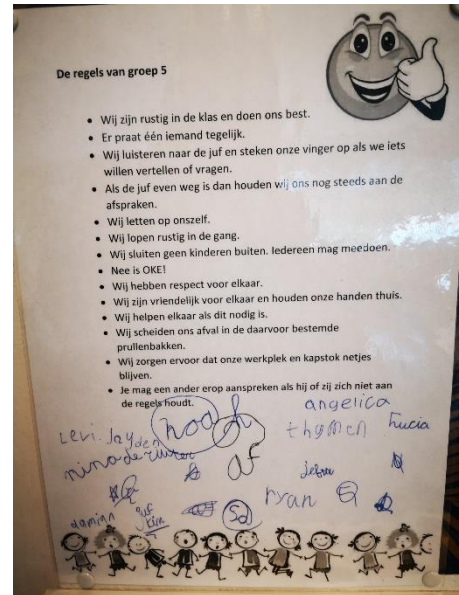 De regels van groep 5
• Wij zijn rustig in de klas en doen ons best.
• Er praat één iemand tegelijk.
• Wij luisteren naar de juf en steken onze vinger op als we iets
willen vertellen of vragen.
• Als de juf even weg is dan houden wij ons nog steeds aan de
afspraken.
• Wij letten op onszelf.
• Wij lopen rustig in de gang.
• Wij sluiten geen kinderen buiten. Iedereen mag meedoen.
• Nee is OKE!
• Wij hebben respect voor elkaar.
• Wij zijn vriendelijk voor elkaar en houden onze handen thuis.
• Wij helpen elkaar als dit nodig is.
• Wij scheiden ons afval in de daarvoor bestemde
prullenbakken.
• Wij zorgen ervoor dat onze werkplek en kapstok netjes
blijven.
• Je mag een ander erop aanspreken als hij of zij zich niet aan
de regels houdt.
angelica
Levi. Jayden
thymen
Lucia
nino de ruiter
ryan
damian
juf
kim